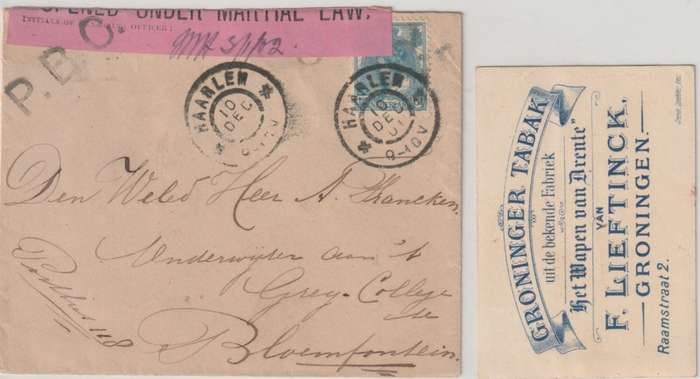 OPENED UNDER MARTIAL LAW.
INITIALS OF OFFICER:
P.B.C.
HAARLEM
10
DEC
9-10V
HAARLEM
10
DEC
01
9-10V
Den Weled Heer A. Francken.
Onderwijzer aan 't
Grey-College
te
Bloemfontein.
Postbus 118
GRONINGER TABAK
uit de bekende Fabriek
"Het Wapen van Drente"
VAN
F. LIEFTINCK,
GRONINGEN.
Raamstraat 2.